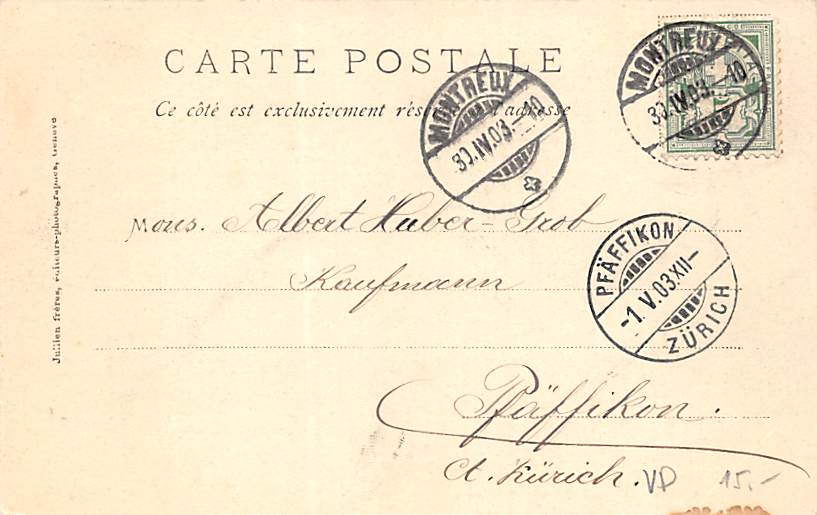 CARTE POSTALE
Ce côté est exclusivement rés l'adresse
MONTREUX
30.IV.03.–10
MONTREUX
30.IV.03.–10
Mons. Albert Huber-Grob
Kaufmann
PFÄFFIKON
-1.V.03.XII–
ZÜRICH
Pfäffikon.
Ct. Zürich.
VP 15.-
Jullien frères, éditeurs-photographes, Genève